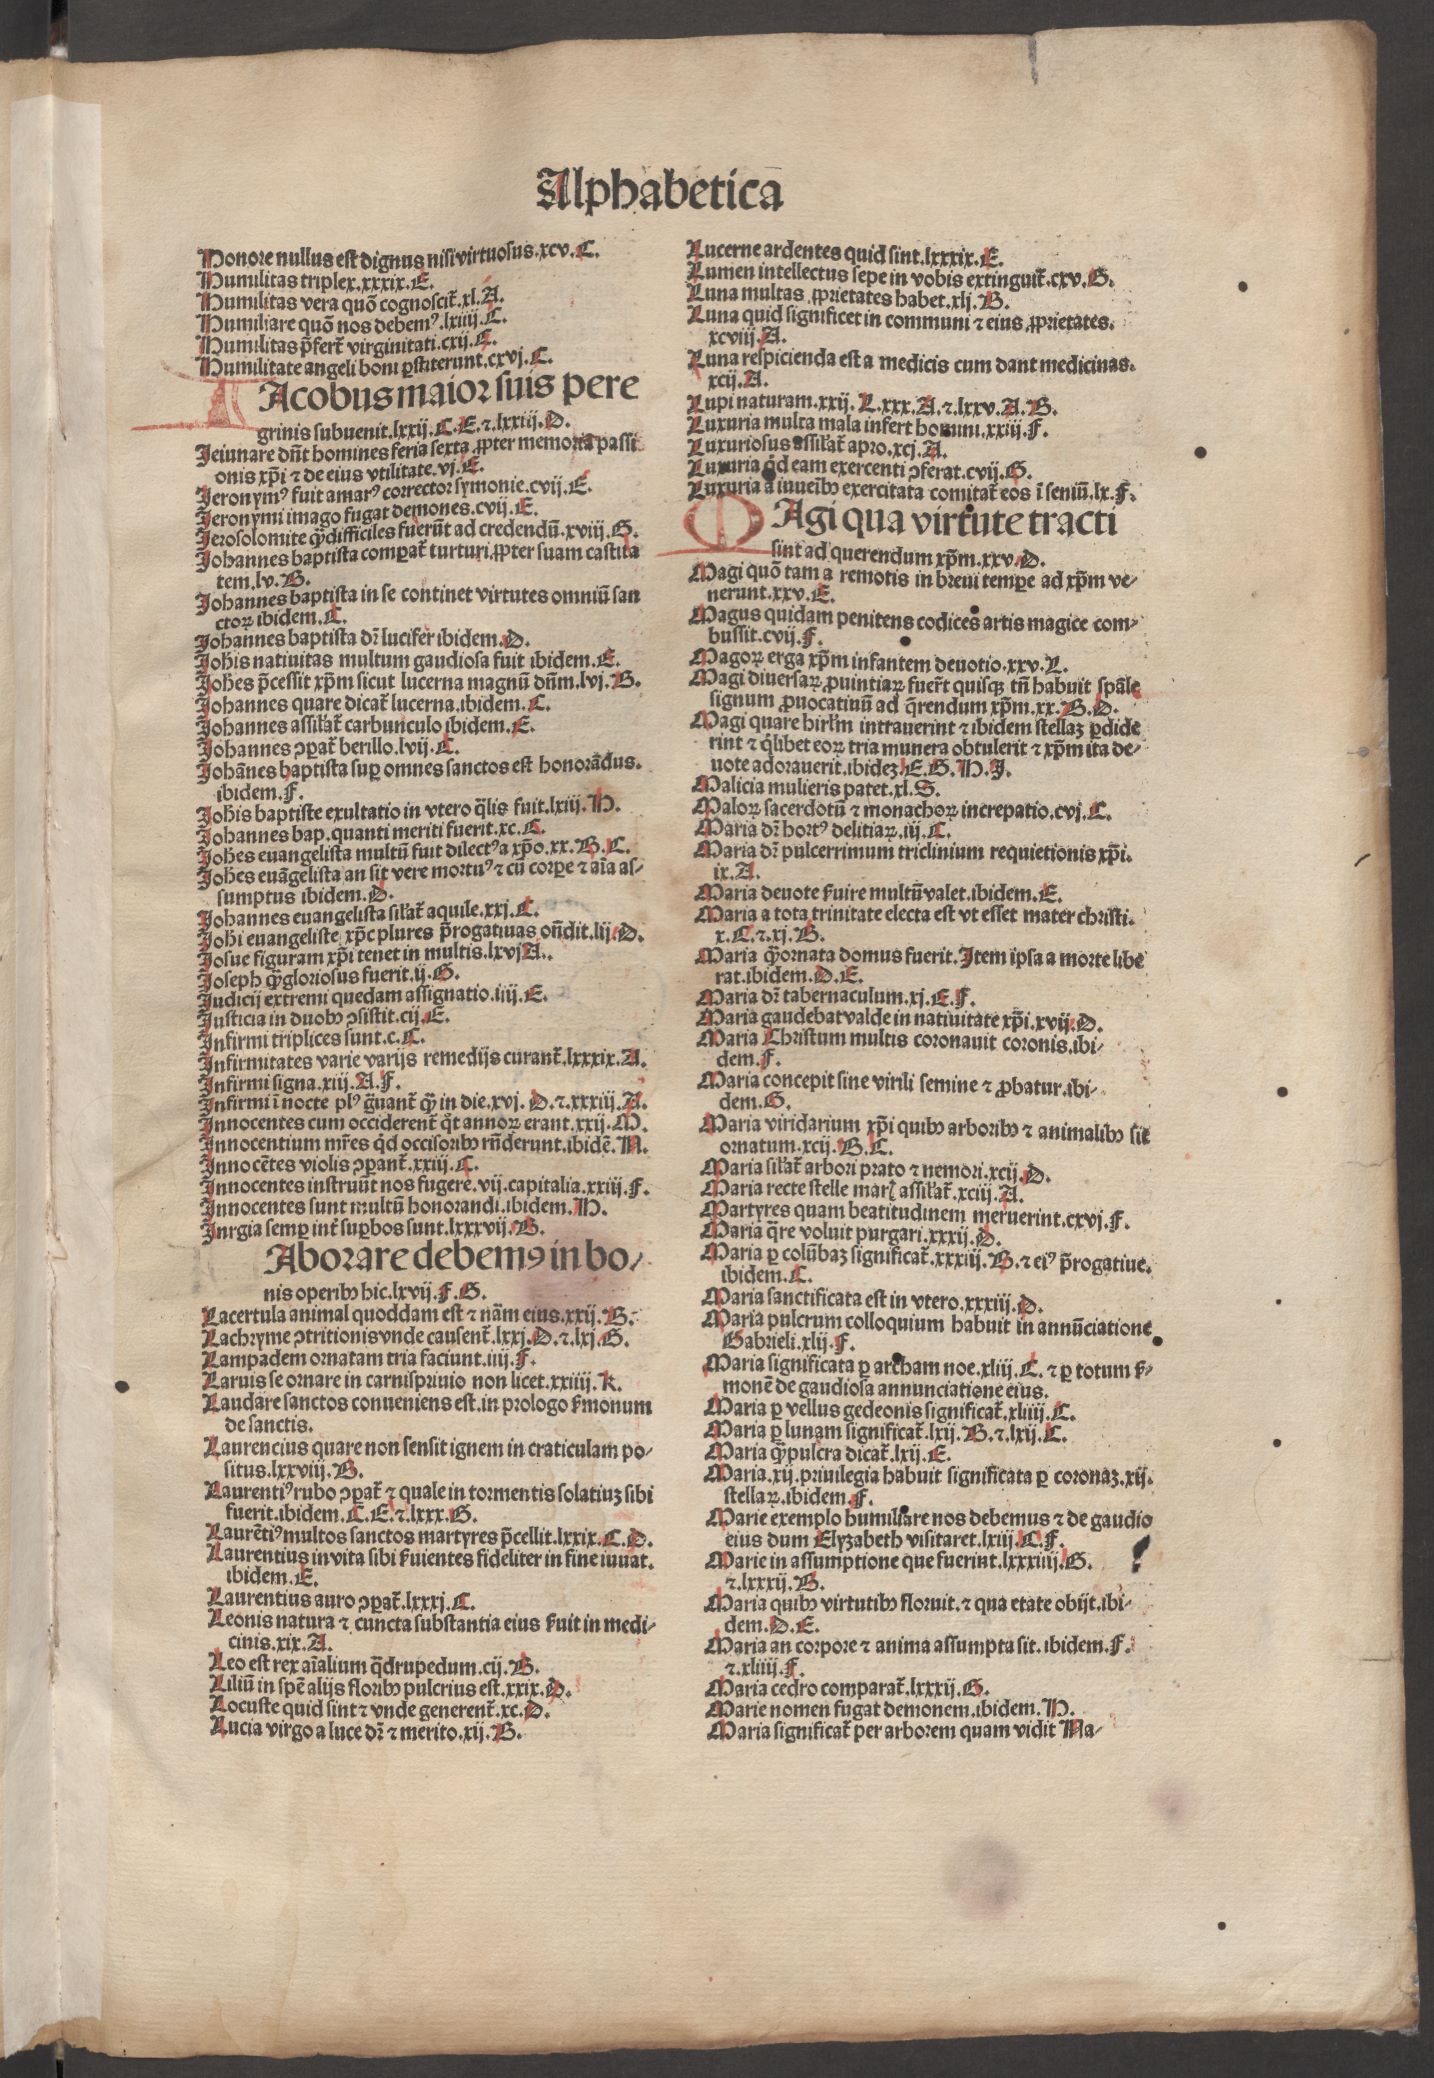 Alphabetica
Honore nullus est dignus nisi virtuosus.xcv.C.
Humilitas triplex.xxxix.E.
Humilitas vera quō cognoscit̄.xl.A.
Humiliare quō nos debemꝰ.lxiiij.C.
Humilitas p̄fert̄ virginitati.cxij.E.
Humilitate angeli boni ꝑstiterunt.cxvj.C.
IAcobus maior suis pere
grinis subuenit.lxxij.C.E.⁊.lxxiij.D.
Jeiunare dn̄t homines feria sexta ꝓpter memoriā passi
onis xp̄i ⁊ de eius vtilitate.vj.E.
Jeronymꝰ fuit amarꝰ corrector symonie.cvij.E.
Jeronymi imago fugat demones.cvij.E.
Jerosolomite qꝫ̄difficiles fuerūt ad credendū.xviij.G.
Johannes baptista comꝑat̄ turturi.ꝓpter suam castita
tem.lv.B.
Johannes baptista in se continet virtutes omniū san
ctoꝝ ibidem.C.
Johannes baptista dr̄ lucifer ibidem.D.
Joh̄is natiuitas multum gaudiosa fuit ibidem.E.
Joh̄es p̄cessit xp̄m sicut lucerna magnū dn̄m.lvj.B.
Johannes quare dicat̄ lucerna.ibidem.C.
Johannes assil̄at̄ carbunculo ibidem.E.
Johannes ↄꝑat̄ berillo.lvij.C.
Johānes baptista suꝑ omnes sanctos est honorādus.
ibidem.F.
Joh̄is baptiste exultatio in vtero q̄lis fuit.lxiij.H.
Johannes bap.quanti meriti fuerit.xc.C.
Joh̄es euangelista multū fuit dilectꝰa xp̄o.xx.B.C.
Joh̄es euāgelista an sit vere mortuꝰ ⁊ cū corꝑe ⁊ aīa as-
sumptus ibidem.D.
Johannes euangelista sil̄at̄ aquile.xxj.C.
Joh̄i euangeliste xp̄c plures p̄rogatiuas on̄dit.lij.D.
Josue figuram xp̄i tenet in multis.lxvjA..
Joseph qꝫ̄gloriosus fuerit.ij.G.
Judicij extremi quedam assignatio.iiij.E.
Justicia in duobꝫ ↄsistit.cij.E.
Infirmi triplices sunt.c.C.
Infirmitates varie varijs remedijs curant̄.lxxxix.A.
Infirmi signa.xiij.A.F.
Infirmi ī nocte plꝰ g̈uant̄ qꝫ̄ in die.xvj.D.⁊.xxxiij.A.
Innocentes cum occiderent̄ q̊t annoꝝ erant.xxij.M.
Innocentium mr̄es q̊d occisoribꝫ rn̄derunt.ibidē.N.
Innocētes violis ↄꝑant̄.xxiij.C.
Innocentes instruūt nos fugere.vij.capitalia.xxiij.F.
Innocentes sunt multū honorandi.ibidem.H.
Inrgia semꝑ int̄ suꝑbos sunt.lxxxvij.B.
Aborare debemꝰ in bo-
nis operibꝫ hic.lxvij.F.G.
Lacertula animal quoddam est ⁊ nām eius.xxij.B.
Lachryme ↄtritionis vnde causent̄.lxxj.D.⁊.lxj.G.
Lampadem ornatam tria faciunt.iiij.F.
Laruis se ornare in carnispriuio non licet.xxiiij.K.
Laudare sanctos conueniens est.in prologo ẜmonum
de sanctis.
Laurencius quare non sensit ignem in craticulam po-
situs.lxxviij.B.
Laurentiꝰ rubo ↄꝑat̄ ⁊ quale in tormentis solatiuꝫ sibi
fuerit.ibidem.C.E.⁊.lxxx.G.
Laurētiꝰ multos sanctos martyres p̄cellit.lxxix.C.D.
Laurentius in vita sibi ẜuientes fideliter in fine iuuat.
ibidem.E.
Laurentius auro ↄꝑat̄.lxxxj.C.
Leonis natura ⁊ cuncta substantia eius ẜuit in medi-
cinis.xix.A.
Leo est rex aīalium q̄drupedum.cij.B.
Liliū in spē alijs floribꝫ pulcrius est.xxix.D.
Locuste quid sint ⁊ vnde generent̄.xc.D.
Lucia virgo a luce dr̄ ⁊ merito.xij.B.
Lucerne ardentes quid sint.lxxxix.E.
Lumen intellectus sepe in vobis extinguit̄.cxv.G.
Luna multas ꝓprietates habet.xlj.B.
Luna quid significet in communi ⁊ eius ꝓprietates.
xcviij.A.
Luna respicienda est a medicis cum dant medicinas.
xcij.A.
Lupi naturam.xxij.L.xxx.A.⁊.lxxv.A.B.
Luxuria multa mala infert homini.xxiij.F.
Luxuriosus assil̄at̄ apro.xcj.A.
Luxuria q̊d eam exercenti ↄferat.cvij.G.
Luxuria ā iuueībꝫ exercitata comitat̄ eos ī seniū.lx.F.
MAgi qua virtute tracti
sint ad querendum xp̄m.xxv.D.
Magi quō tam a remotis in breui temꝑe ad xp̄m ve-
nerunt.xxv.E.
Magus quidam penitens codices artis magice com-
bussit.cvij.F.
Magoꝝ erga xp̄m infantem deuotio.xxv.L.
Magi diuersaꝝ ꝓuintiaꝝ fuer̄t quisqꝫ tn̄ habuit spāle
signum ꝓuocatiuū ad q̄rendum xp̄m.xx.B.D.
Magi quare hirl̄m intrauerint ⁊ ibidem stellaꝫ ꝑdide
rint ⁊ q̊libet eoꝝ tria munera obtulerit ⁊ xp̄m ita de-
uote adorauerit.ibideꝫ.E.G.H.J.
Malicia mulieris patet.xl.S.
Maloꝝ sacerdotū ⁊ monachoꝝ increpatio.cvj.C.
Maria dr̄ hortꝰ delitiaꝝ.iij.C.
Maria dr̄ pulcerrimum triclinium requietionis xp̄i.
ix.A.
Maria deuote ẜuire multū valet.ibidem.E.
Maria a tota trinitate electa est vt esset mater christi.
x.C.⁊.xj.B.
Maria qꝫ̄ornata domus fuerit.Item ipsa a morte libe
rat.ibidem.D.E.
Maria dr̄ tabernaculum.xj.E.F.
Maria gaudebat valde in natiuitate xp̄i.xvij.D.
Maria Christum multis coronauit coronis.ibi-
dem.F.
Maria concepit sine virili semine ⁊ ꝓbatur.ibi-
dem.G.
Maria viridarium xp̄i quibꝫ arboribꝫ ⁊ animalibꝫ sit
ornatum.xcij.B.C.
Maria sil̄at̄ arbori prato ⁊ nemori.xcij.D.
Maria recte stelle marꝭ assil̄at̄.xciij.A.
Martyres quam beatitudinem meruerint.cxvj.F.
Maria q̄re voluit purgari.xxxij.D.
Maria ꝑ colūbaꝫ significat̄.xxxiij.B.⁊ eiꝰ p̄rogatiue.
ibidem.C.
Maria sanctificata est in vtero.xxxiij.D.
Maria pulcrum colloquium habuit in annūciatione
Gabrieli.xlij.F.
Maria significata ꝑ archam noe.xliij.C.⁊ ꝑ totum ẜ-
monē de gaudiosa annunciatione eius.
Maria ꝑ vellus gedeonis significat̄.xliiij.C.
Maria ꝑ lunam significat̄.lxij.B.⁊.lxij.C.
Maria qꝫ̄pulcra dicat̄.lxij.E.
Maria.xij.priuilegia habuit significata ꝑ coronaꝫ.xij.
stellaꝝ.ibidem.F.
Marie exemplo humiliare nos debemus ⁊ de gaudio
eius dum Elyzabeth visitaret.lxiij.C.F.
Marie in assumptione que fuerint.lxxxiiij.G.
⁊.lxxxij.B.
Maria quibꝫ virtutibꝫ floruit.⁊ qua etate obijt.ibi-
dem.D.E.
Maria an corpore ⁊ anima assumpta sit.ibidem.F.
⁊.xliiij.F.
Maria cedro comparat̄.lxxxij.G.
Marie nomen fugat demonem.ibidem.H.
Maria significat̄ per arborem quam vidit Na-